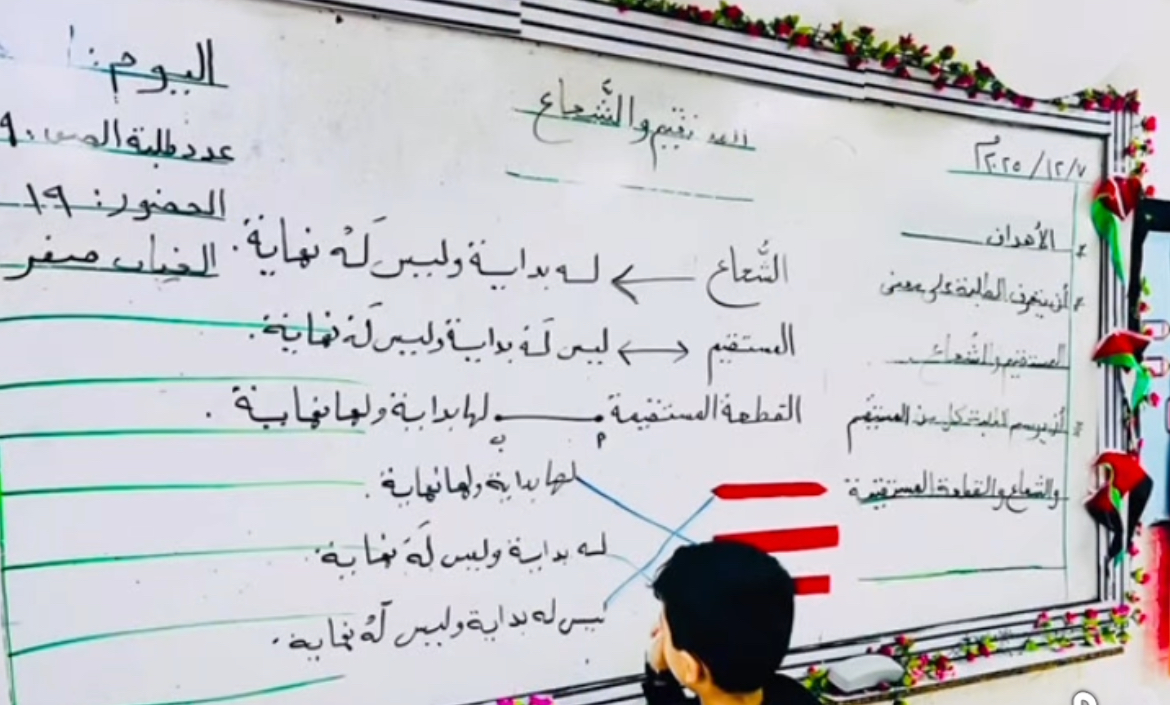 ٢٠٢٥/١٢/٧م
المستقيم والشُّعاع
اليوم:
عدد طلبة الصف
الحضور: ١٩
الغياب صفر
الأهداف
أن يتعرف الطلبة على معنى
المستقيم والشُّعاع
أن يرسم الطلبة كل من المستقيم
والشعاع والقطعة المستقيمة
الشُّعاع ← له بداية وليس لَهُ نهاية.
المستقيم ↔ ليس لَهُ بداية وليس لَهُ نهاية.
القطعة المستقيمة لها بداية ولها نهاية.
أ ب
لها بداية ولها نهاية.
له بداية وليس لَهُ نهاية.
ليس له بداية وليس لَهُ نهاية.